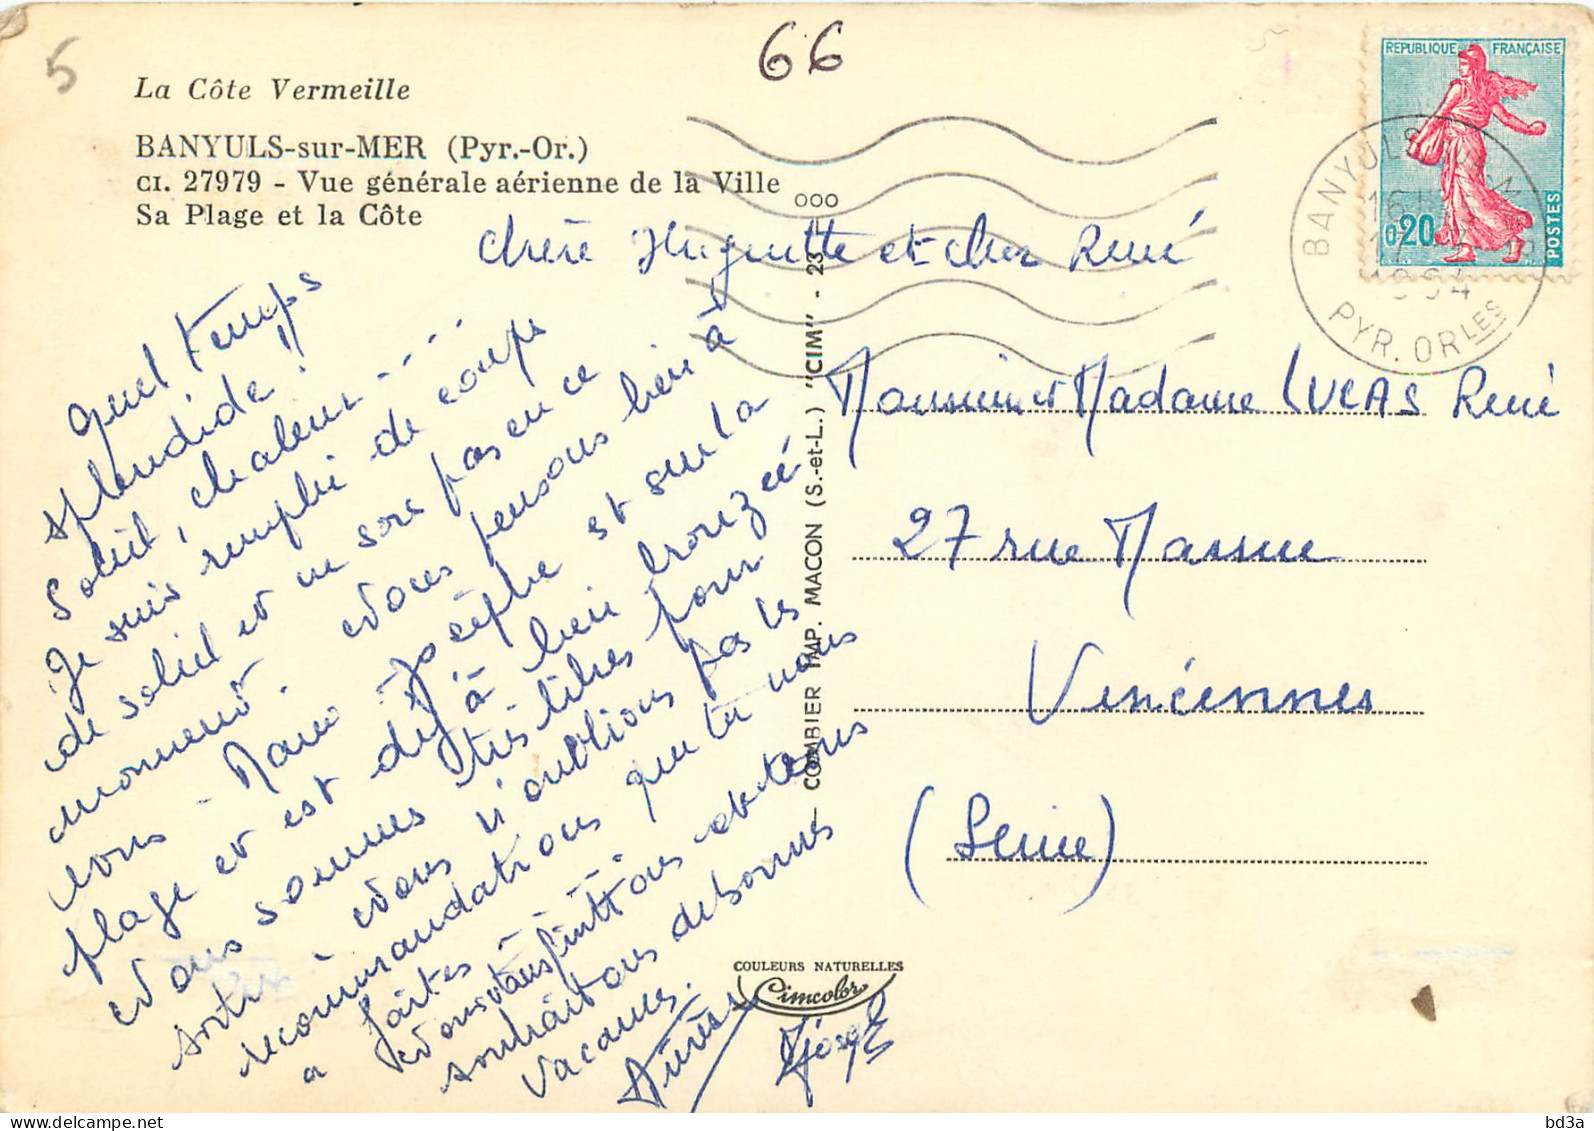 5
66
La Côte Vermeille
BANYULS-sur-MER (Pyr.-Or.)
CI. 27979 - Vue générale aérienne de la Ville
Sa Plage et la Côte
REPUBLIQUE FRANÇAISE
0,20
POSTES
BANYULS
16H
1964
PYR. ORLES
Chère Huguette et cher René
quel temps
splendide !!
Soleil, chaleur ---
Je suis remplie de coups
de soleil et ne sors pas en ce
moment. Nous pensons bien à
vous - Marie-Josèphe est sur la
plage et est déjà bien bronzée
Nous sommes très libres pour
sortir. Nous n'oublions pas les
recommandations que tu nous
a faites -
Nous souhaitons de bonnes
vacances.
Josèph
ooo
COMBIER IMP. MACON (S.-et-L.) "CIM" - 23
Monsieur et Madame LUCAS René
27 rue Massue
Vincennes
(Seine)
COULEURS NATURELLES
Cimcolor
bd3a